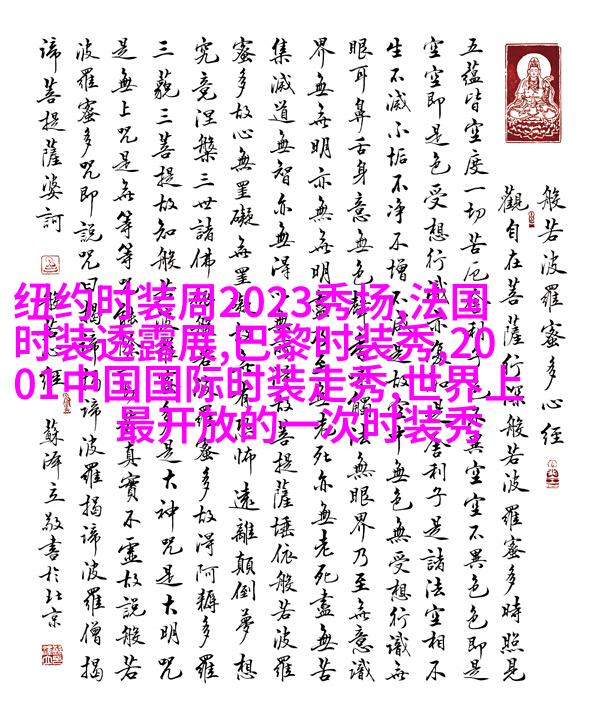 般若波羅蜜多心經
觀自在菩薩行深般若波羅蜜多時照見
五蘊皆空度一切苦厄舍利子異空空不異色色即是
空空即是色受想行識亦是舍利子是諸法空相不
生不滅不垢不净不增不是故中無色無受想行識無
眼耳鼻舌身意無色聲觸無眼界乃至無意識
界無無明亦無無明盡乃至老死亦無老死盡無苦
集滅道無智亦無得以無故菩提薩埵依般若波羅
蜜多故心無罣礙無罣有怖遠離顛倒夢想
究竟涅槃三世諸佛多故得阿耨多羅
三藐三菩提故知般若是大神咒是大明咒
是無上咒是無等等咒真實不虛故說般若
波羅蜜多咒即說咒曰揭諦揭諦波羅揭諦波羅僧揭
諦菩提薩婆訶
般若心經
敬書於北京
纽约时装周2023秀场,法国
时装透露展,巴黎时装秀,20
01中国国际时装走秀,世界上
最开放的一次时装秀